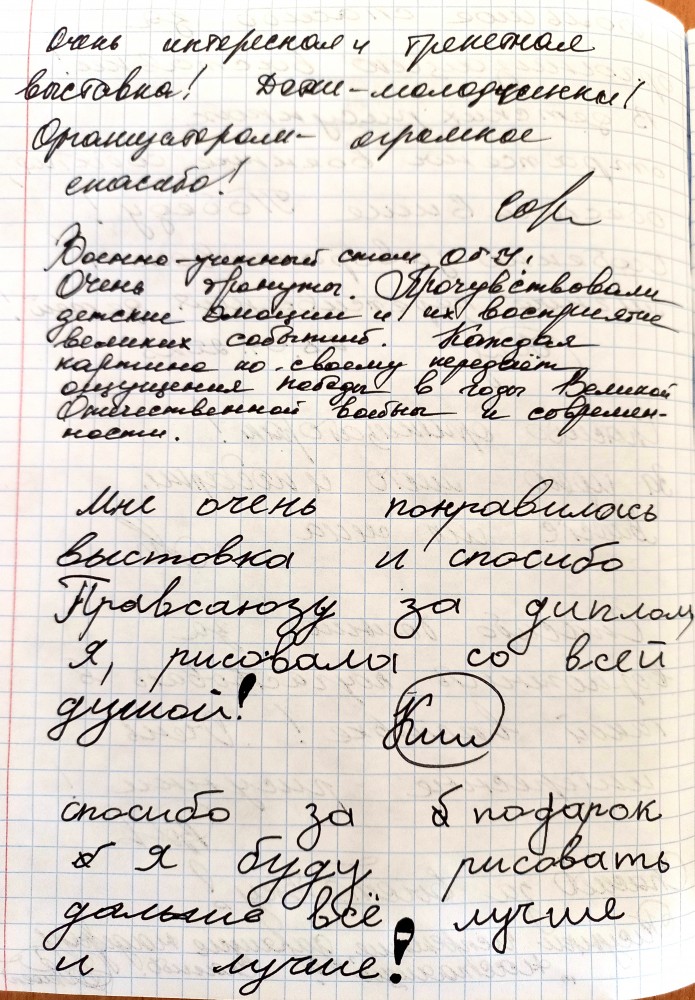 Очень интересная и трепетная
выставка! Детки-молодчинки!
Организаторам- огромное
спасибо!
Военно-учетный стол
Очень тронуты. Прочувствовали
детские эмоции и их восприятие
великих событий. Каждая
картина по-своему передаёт
ощущения победы в годы Великой
Отечественной войны и современ-
ности.
Мне очень понравилась
выстовка и спосибо
Правсаюзу за диплом,
Я, рисовала со всей
душой!
спосибо за подарок
Я буду рисовать
дальше всё лучше
и лучше!